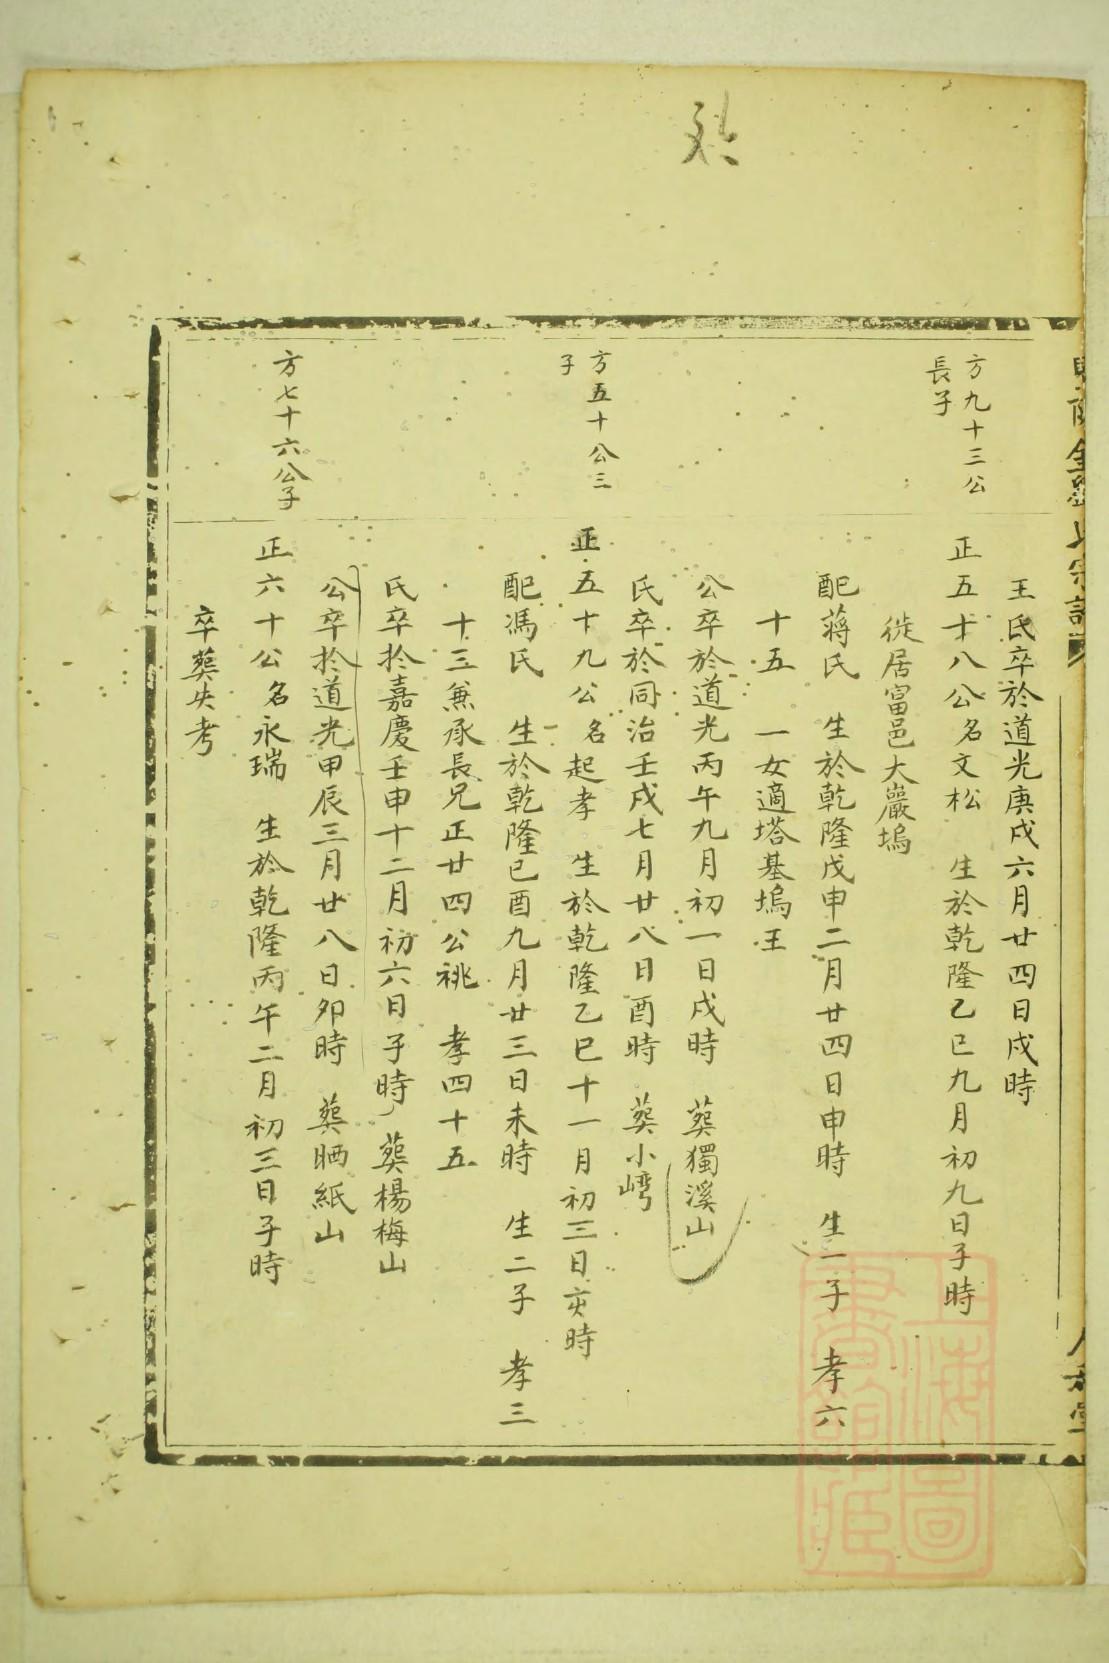 王氏卒於道光庚戌六月廿四日戌時
方九十三公
長子
正五十八公名文松 生於乾隆乙巳九月初九日子時
徙居富邑大巖塢
配蔣氏 生於乾隆戊申二月廿四日申時 生一子 孝六
十五 一女適塔基塢王
公卒於道光丙午九月初一日戌時 葬獨溪山
氏卒於同治壬戌七月廿八日酉時 葬小嶹
方五十公三
子
正五十九公名起孝 生於乾隆乙巳十一月初三日亥時
配馮氏 生於乾隆己酉九月廿三日未時 生二子 孝三
十三兼承長兄正廿四公祧 孝四十五
氏卒於嘉慶壬申十二月初六日子時 葬楊梅山
公卒於道光甲辰三月廿八日卯時 葬晒紙山
方七十六公子
正六十公名永瑞 生於乾隆丙午二月初三日子時
卒葬失考
上海圖
書館藏